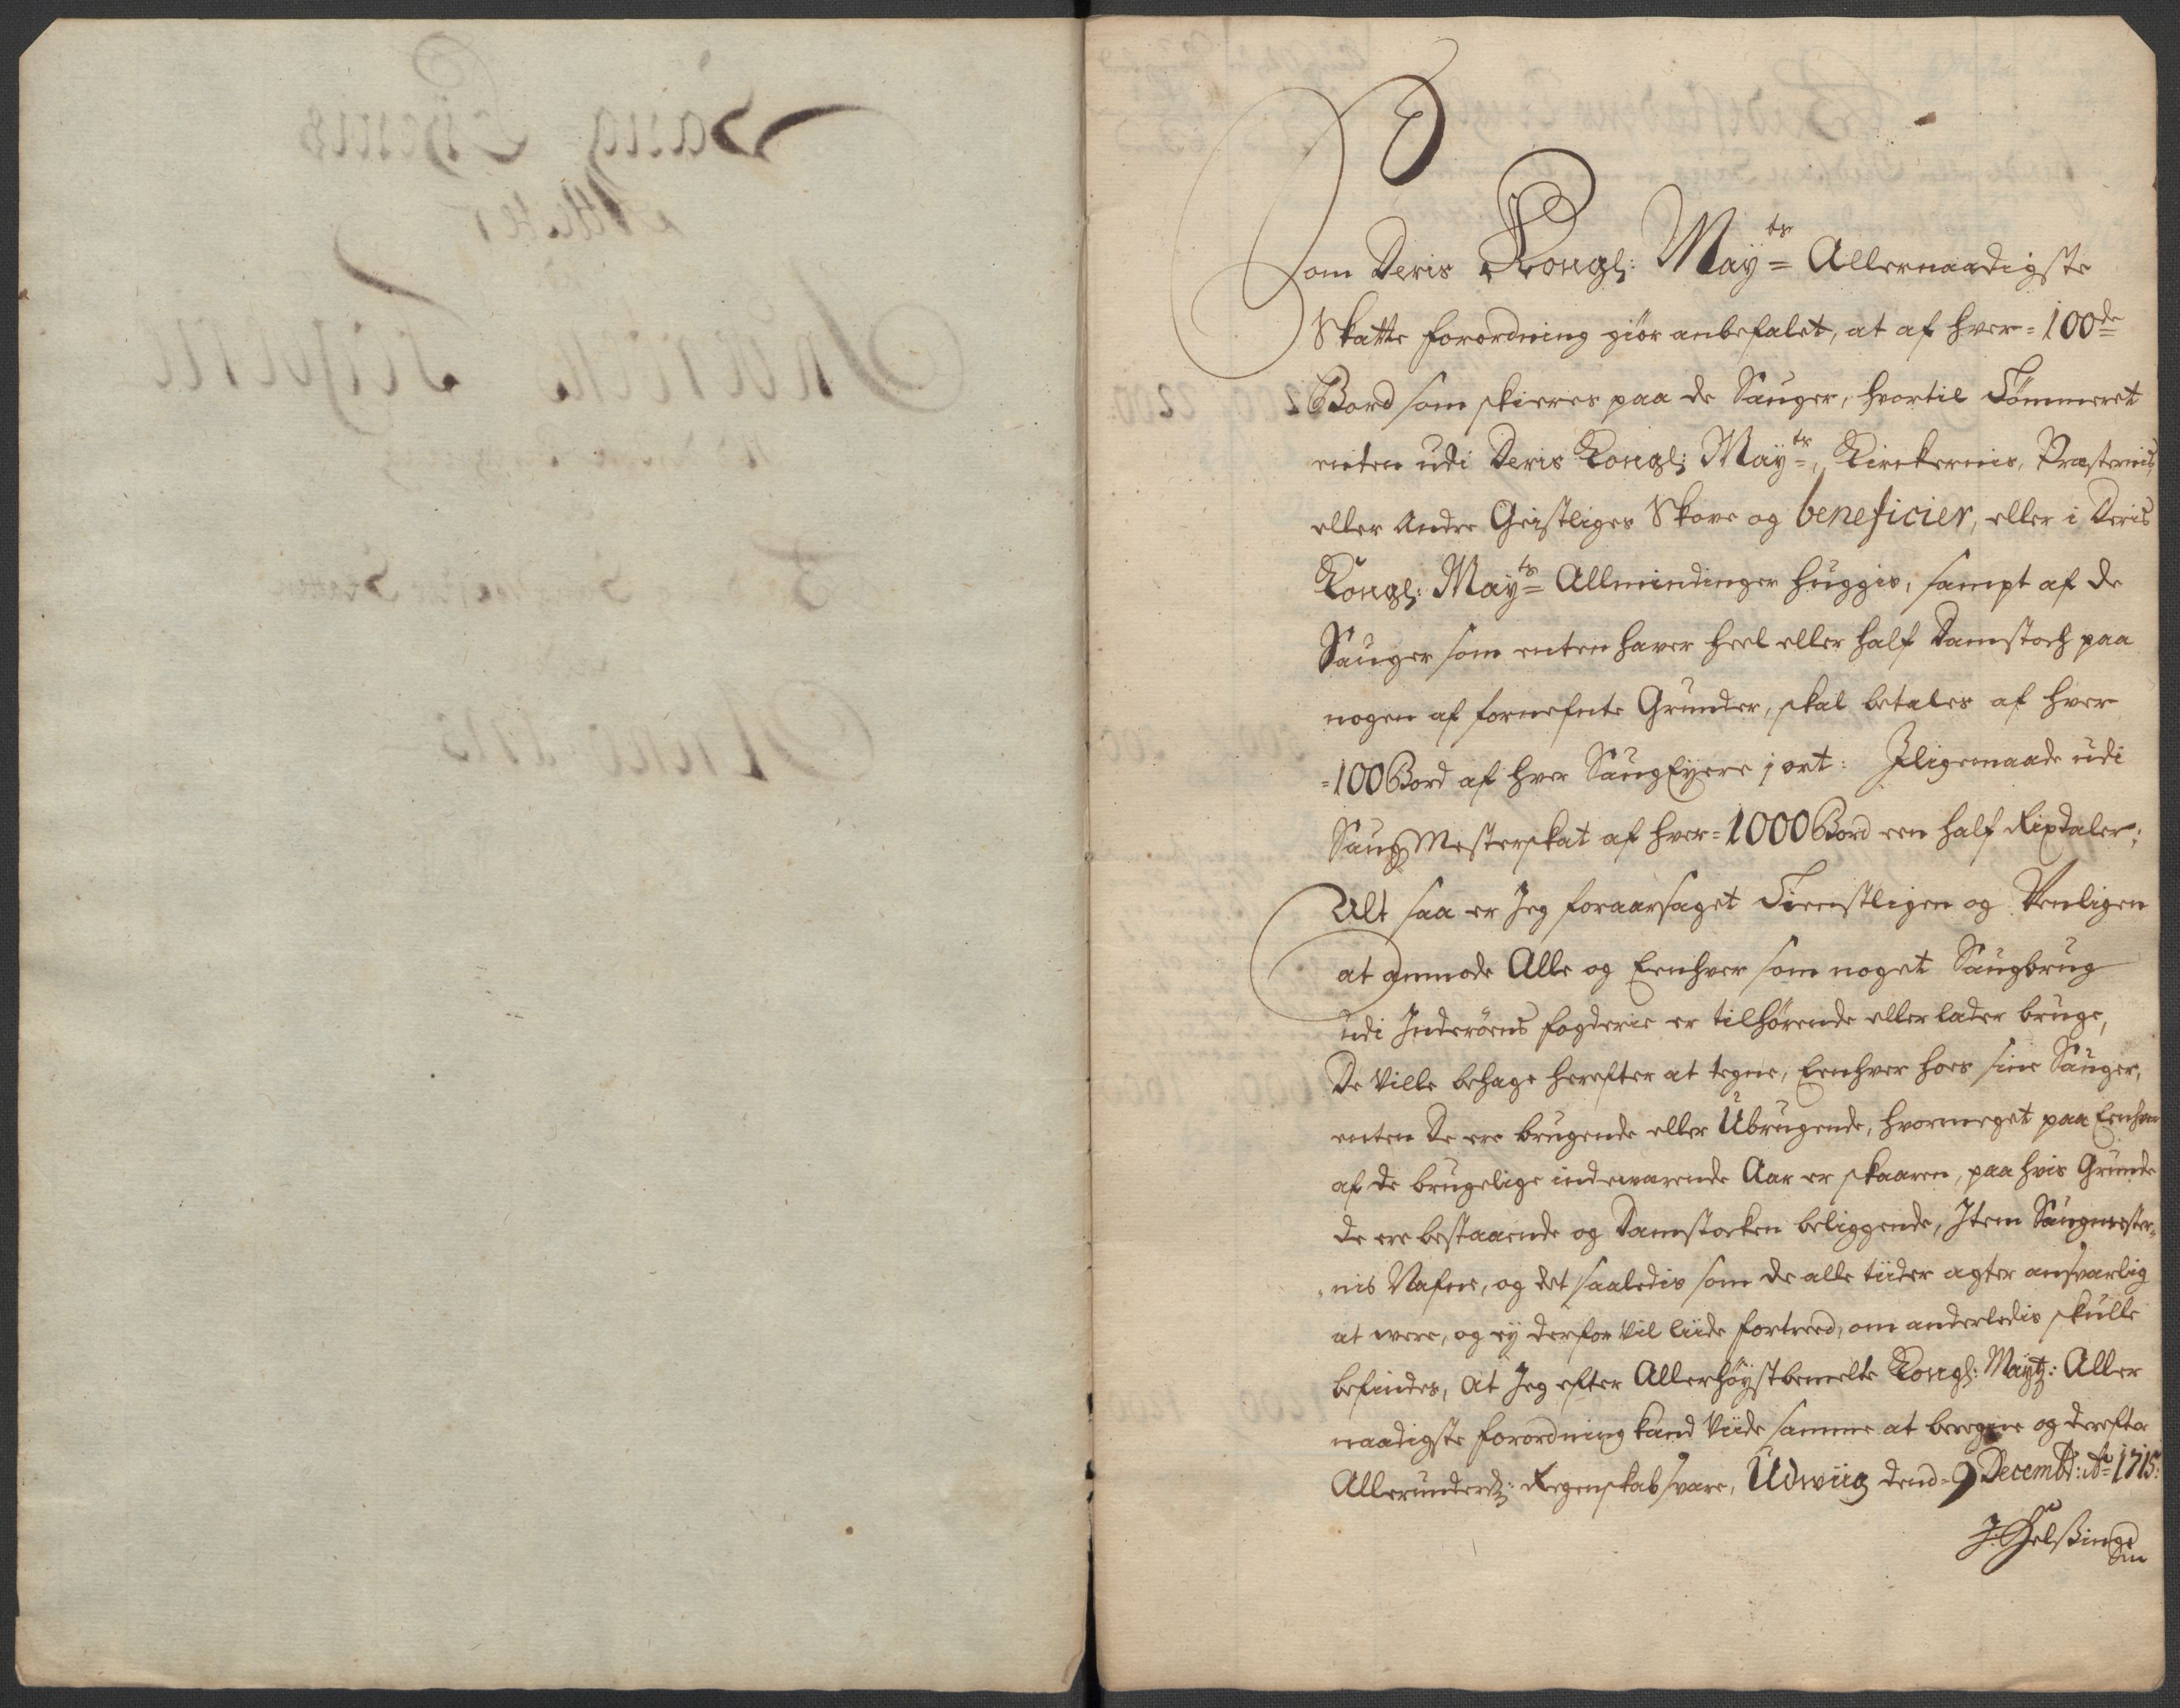 Som Deris Kongl: Mayts Allernaadigste
Skatte forordning giør anbefalet, at af hver 100de
Bord som skieres paa de Sauger, hvortil Tømmeret
enten udi Deris Kongl: Mayts, Kirkernis, Præsternis,
eller Andre Geistliges Skove og beneficier, eller i Deris
Kongl: Mayts Allmindinger huggis, sampt af de
Sauger som enten haver heel eller half Damstoch paa
nogen af fornefnte Grunder, skal betales af hver
100 Bord af hver SaugEyere j ort: Jligemaade udi
SaugMesterskat af hver 1000 Bord een half Rixdaler;
Alt saa er Jeg foraarsaget Tienstligen og Venligen
at anmode Alle og Eenhver som noget Saugbrug
udi Inderøens fogderie er tilhørende eller lader bruge,
De Ville behage herefter at tegne, Eenhver hoes sine Sauger,
enten De ere brugende eller Ubrugende, hvormeget paa Eenhver
af de brugelige indewærende Aar er skaaren, paa hvis Grunde
de ere bestaaende og Damstocken beliggende, Item Saugmester-
nis Nafne, og det saaledis som de alle tiider agter ansvarlig
at were, og ey derfor vil liide fortreed, om anderledis skulle
befindes, At Jeg efter Allerhøystbemelte Kongl: Maytz: Aller
naadigste forordning kand Viide samme at beregne og derefter
Allerunderd: Regenskab svare, Udwiig dend 9 Decembr: Ao 1715:
J. Helsing